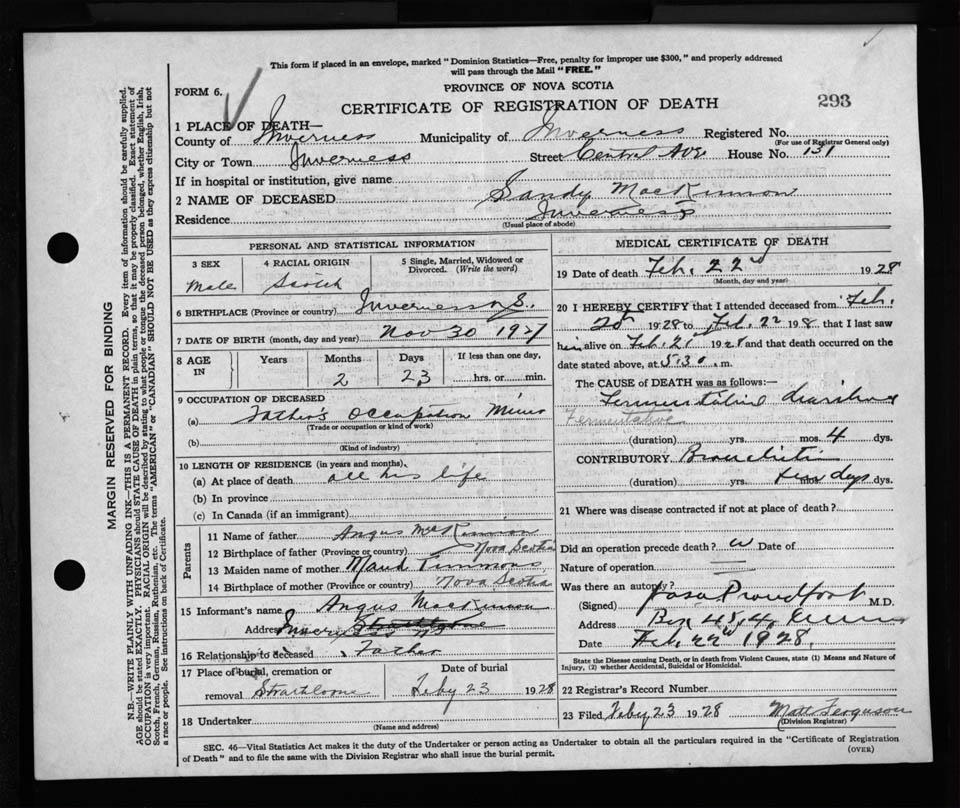 This form if placed in an envelope, marked "Dominion Statistics—Free, penalty for improper use $300," and properly addressed
will pass through the Mail "FREE."
FORM 6.
PROVINCE OF NOVA SCOTIA
CERTIFICATE OF REGISTRATION OF DEATH
293
1 PLACE OF DEATH—
County of Inverness Municipality of Inverness Registered No.
(For use of Registrar General only)
City or Town Inverness Street Central Ave House No. 131
If in hospital or institution, give name
2 NAME OF DECEASED Sandy MacKinnon
Residence Inverness
(Usual place of abode)
PERSONAL AND STATISTICAL INFORMATION
3 SEX
Male
4 RACIAL ORIGIN
Scotch
5 Single, Married, Widowed or Divorced. (Write the word)
6 BIRTHPLACE (Province or country) Inverness N.S.
7 DATE OF BIRTH (month, day and year) Nov 30 1927
8 AGE IN
Years Months Days If less than one day,
2 23 hrs. or min.
9 OCCUPATION OF DECEASED
(a) Father's Occupation Miner
(Trade or occupation or kind of work)
(b)
(Kind of industry)
10 LENGTH OF RESIDENCE (in years and months).
(a) At place of death all his life
(b) In province
(c) In Canada (if an immigrant)
Parents
11 Name of father Angus MacKinnon
12 Birthplace of father (Province or country) Nova Scotia
13 Maiden name of mother Maud Timmons
14 Birthplace of mother (Province or country) Nova Scotia
15 Informant's name Angus MacKinnon
Address Inverness NS
16 Relationship to deceased Father
17 Place of burial, cremation or Date of burial
removal Strathlorne Feby 23 1928
18 Undertaker
(Name and address)
MEDICAL CERTIFICATE OF DEATH
19 Date of death Feb. 22nd 1928
(Month, day and year)
20 I HEREBY CERTIFY that I attended deceased from Feb.
20th 1928 to Feb. 22 1928 that I last saw
him alive on Feb. 21 1928 and that death occurred on the
date stated above, at 5.30 .m.
The CAUSE of DEATH was as follows:—
Fermentative diarrhoea
Fermentative
(duration) yrs. mos. 4 dys.
CONTRIBUTORY. Bronchitis
(duration) yrs. mos. few days dys.
21 Where was disease contracted if not at place of death?
Did an operation precede death? Date of
Nature of operation
Was there an autopsy?
(Signed) Proudfoot M.D.
Address Box 454,
Date Feb. 22nd 1928.
State the Disease causing Death, or in death from Violent Causes, state (1) Means and Nature of
Injury, (2) whether Accidental, Suicidal or Homicidal.
22 Registrar's Record Number
23 Filed Feby 23 1928 Matt Ferguson
(Division Registrar)
SEC. 46—Vital Statistics Act makes it the duty of the Undertaker or person acting as Undertaker to obtain all the particulars required in the "Certificate of Registration
of Death" and to file the same with the Division Registrar who shall issue the burial permit.
(OVER)
MARGIN RESERVED FOR BINDING
N.B.—WRITE PLAINLY WITH UNFADING INK—THIS IS A PERMANENT RECORD. Every item of information should be carefully supplied.
AGE should be stated EXACTLY. PHYSICIANS should STATE CAUSE OF DEATH in plain terms, so that it may be properly classified. Exact statement of
OCCUPATION is very important. RACIAL ORIGIN will be described by stating to what people or tongue the deceased person belonged, whether English, Irish,
Scotch, French, German, Russian, Ruthenian, etc. The terms "AMERICAN" or "CANADIAN" SHOULD NOT BE USED as they express citizenship but not
a race or people. See instructions on back of Certificate.